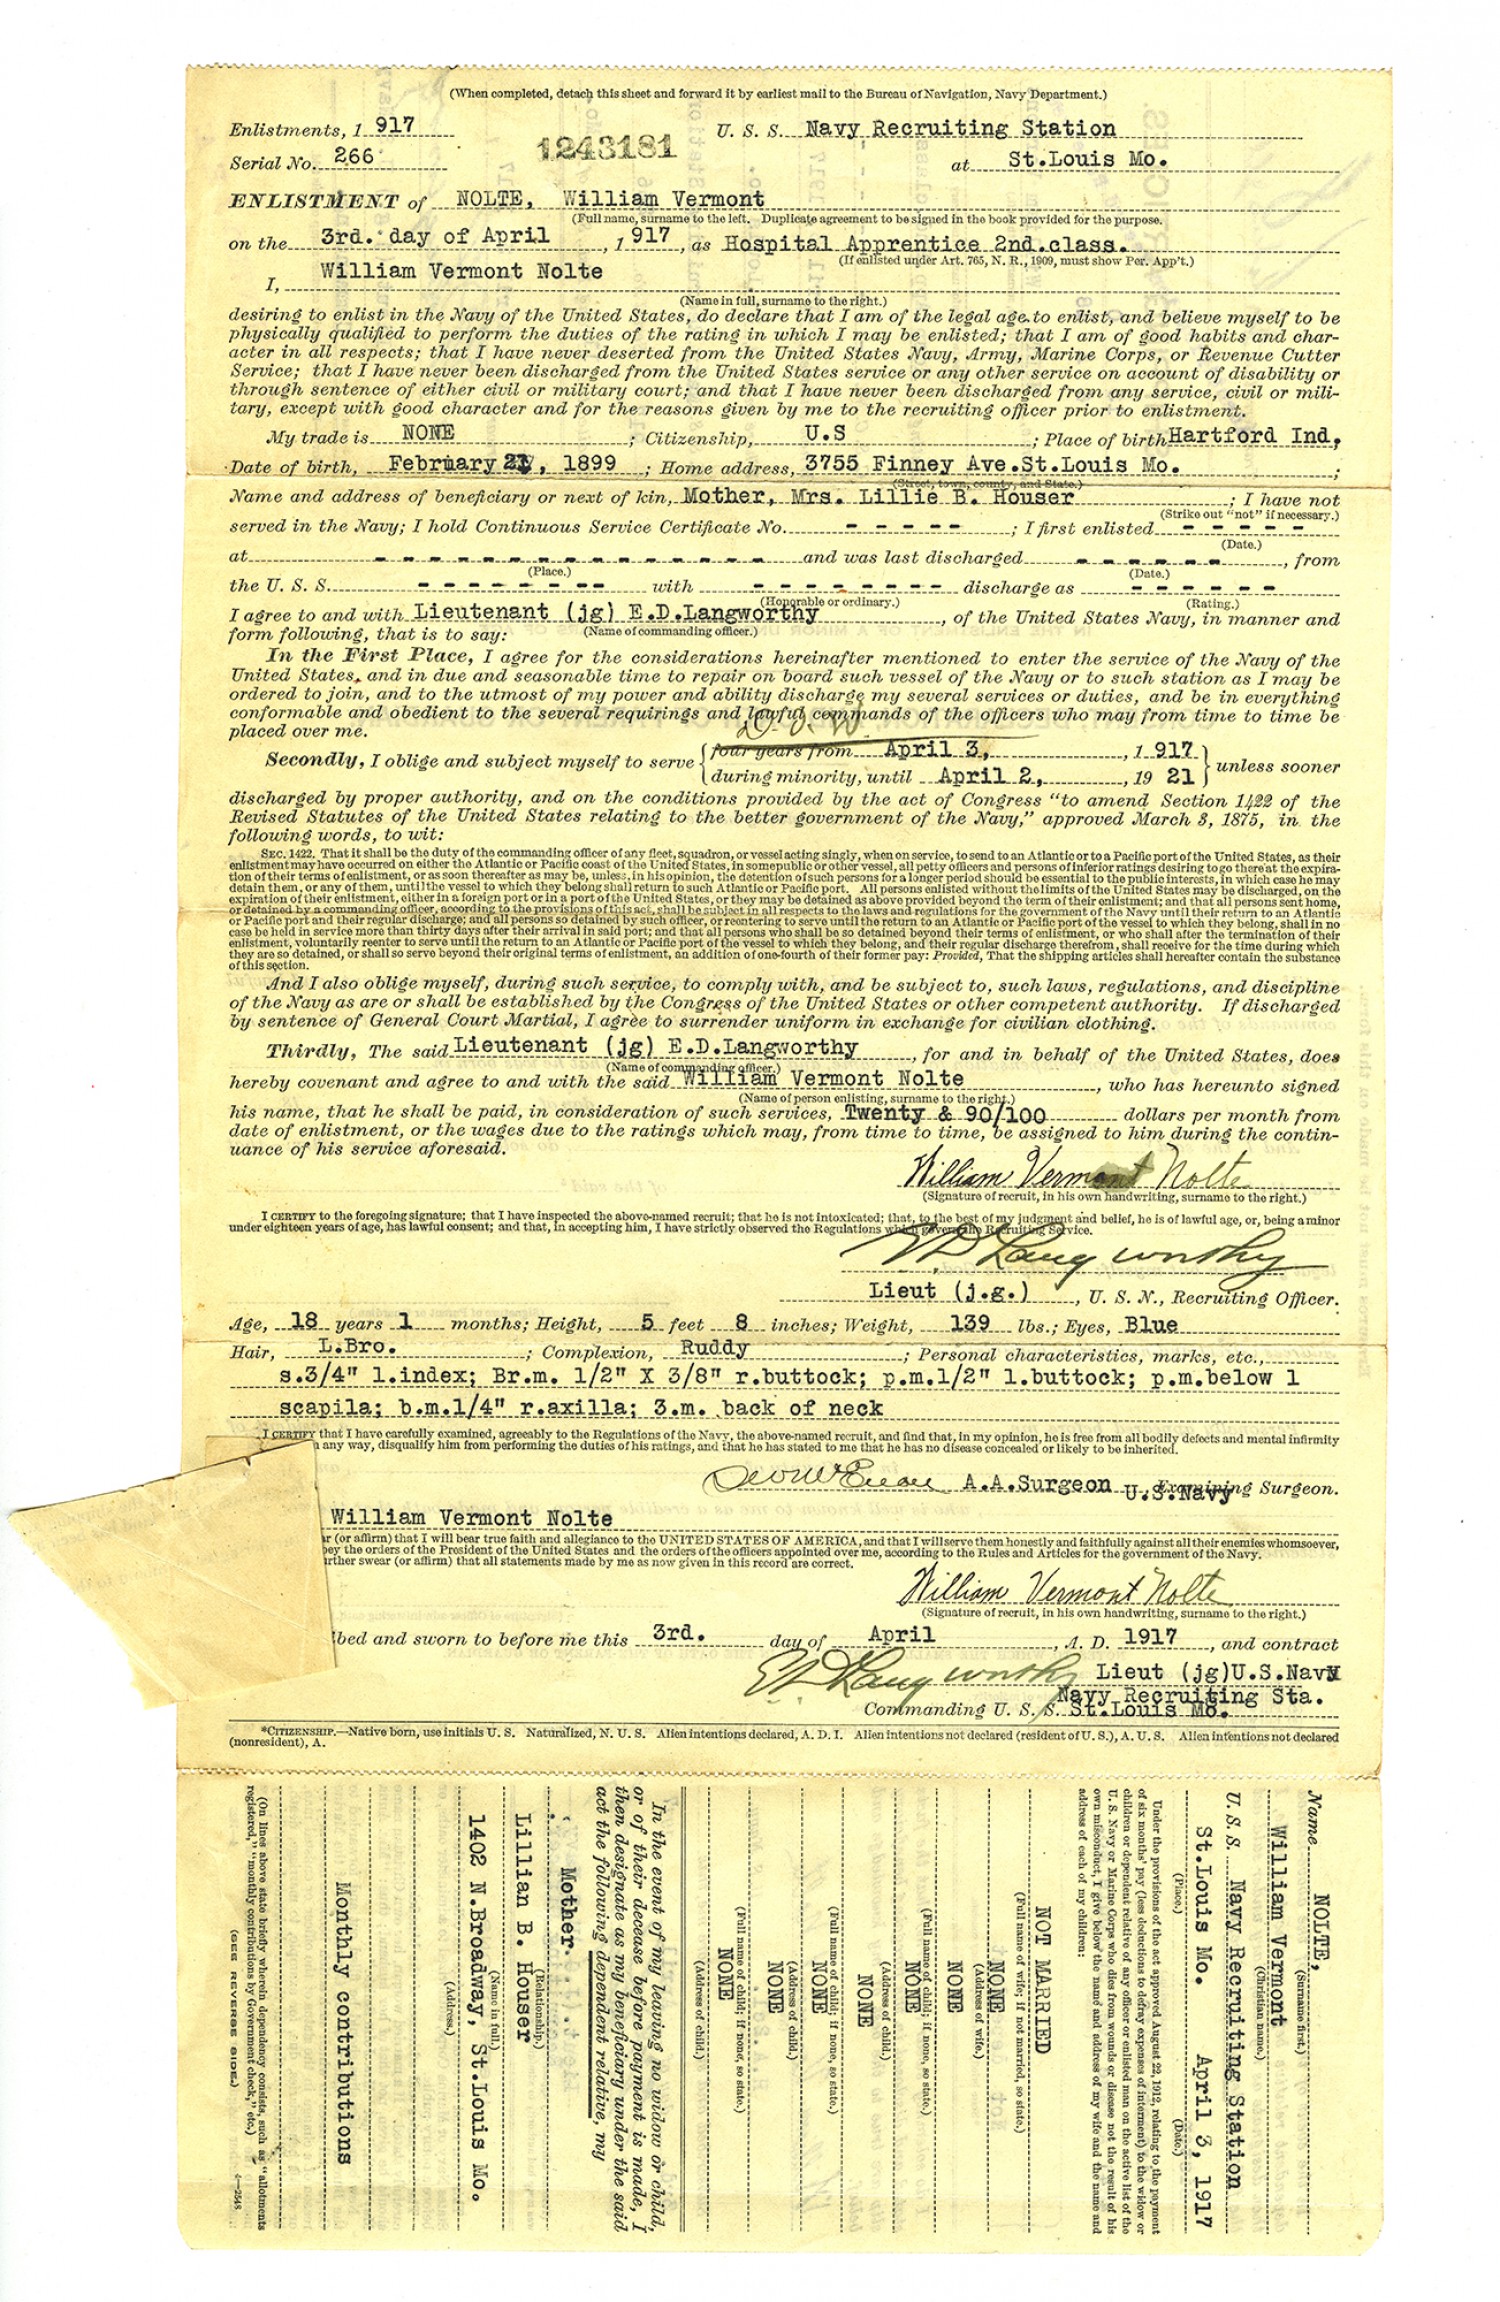 (When completed, detach this sheet and forward it by earliest mail to the Bureau of Navigation, Navy Department.)
Enlistments, 1 917 U. S. S. Navy Recruiting Station
Serial No. 266 1243181 at St.Louis Mo.
ENLISTMENT of NOLTE, William Vermont
(Full name, surname to the left. Duplicate agreement to be signed in the book provided for the purpose.
on the 3rd. day of April, 1 917, as Hospital Apprentice 2nd.class.
(If enlisted under Art. 765, N. R., 1909, must show Per. App't.)
I, William Vermont Nolte
(Name in full, surname to the right.)
desiring to enlist in the Navy of the United States, do declare that I am of the legal age to enlist, and believe myself to be
physically qualified to perform the duties of the rating in which I may be enlisted; that I am of good habits and char-
acter in all respects; that I have never deserted from the United States Navy, Army, Marine Corps, or Revenue Cutter
Service; that I have never been discharged from the United States service or any other service on account of disability or
through sentence of either civil or military court; and that I have never been discharged from any service, civil or mili-
tary, except with good character and for the reasons given by me to the recruiting officer prior to enlistment.
My trade is NONE; Citizenship, U.S; Place of birth Hartford Ind,
Date of birth, February, 1899; Home address, 3755 Finney Ave.St.Louis Mo.;
(Street, town, county, and State.)
Name and address of beneficiary or next of kin, Mother, Mrs. Lillie B. Houser; I have not
(Strike out "not" if necessary.)
served in the Navy; I hold Continuous Service Certificate No. - - - - -; I first enlisted - - - - -
(Date.)
at - - - - - - - - - - - - - - - and was last discharged - - - - - -, from
(Place.) (Date.)
the U. S. S. - - - - - - - - with - - - - - - - - discharge as - - - - - -
(Honorable or ordinary.) (Rating.)
I agree to and with Lieutenant (jg) E.D.Langworthy, of the United States Navy, in manner and
form following, that is to say: (Name of commanding officer.)
In the First Place, I agree for the considerations hereinafter mentioned to enter the service of the Navy of the
United States, and in due and seasonable time to repair on board such vessel of the Navy or to such station as I may be
ordered to join, and to the utmost of my power and ability discharge my several services or duties, and be in everything
conformable and obedient to the several requirings and lawful commands of the officers who may from time to time be
placed over me.
four years from April 3, 1 917
Secondly, I oblige and subject myself to serve unless sooner
during minority, until April 2, 19 21
discharged by proper authority, and on the conditions provided by the act of Congress "to amend Section 1422 of the
Revised Statutes of the United States relating to the better government of the Navy," approved March 3, 1875, in the
following words, to wit:
SEC. 1422. That it shall be the duty of the commanding officer of any fleet, squadron, or vessel acting singly, when on service, to send to an Atlantic or to a Pacific port of the United States, as their
enlistment may have occurred on either the Atlantic or Pacific coast of the United States, in some public or other vessel, all petty officers and persons of inferior ratings desiring to go there at the expira-
tion of their terms of enlistment, or as soon thereafter as may be, unless, in his opinion, the detention of such persons for a longer period should be essential to the public interests, in which case he may
detain them, or any of them, until the vessel to which they belong shall return to such Atlantic or Pacific port. All persons enlisted without the limits of the United States may be discharged, on the
expiration of their enlistment, either in a foreign port or in a port of the United States, or they may be detained as above provided beyond the term of their enlistment; and that all persons sent home,
or detained by a commanding officer, according to the provisions of this act, shall be subject in all respects to the laws and regulations for the government of the Navy until their return to an Atlantic
or Pacific port and their regular discharge; and all persons so detained by such officer, or reentering to serve until the return to an Atlantic or Pacific port of the vessel to which they belong, shall in no
case be held in service more than thirty days after their arrival in said port; and that all persons who shall be so detained beyond their terms of enlistment, or who shall after the termination of their
enlistment, voluntarily reenter to serve until the return to an Atlantic or Pacific port of the vessel to which they belong, and their regular discharge therefrom, shall receive for the time during which
they are so detained, or shall so serve beyond their original terms of enlistment, an addition of one-fourth of their former pay: Provided, That the shipping articles shall hereafter contain the substance
of this section.
And I also oblige myself, during such service, to comply with, and be subject to, such laws, regulations, and discipline
of the Navy as are or shall be established by the Congress of the United States or other competent authority. If discharged
by sentence of General Court Martial, I agree to surrender uniform in exchange for civilian clothing.
Thirdly, The said Lieutenant (jg) E.D.Langworthy, for and in behalf of the United States, does
(Name of commanding officer.)
hereby covenant and agree to and with the said William Vermont Nolte, who has hereunto signed
(Name of person enlisting, surname to the right.)
his name, that he shall be paid, in consideration of such services, Twenty & 90/100 dollars per month from
date of enlistment, or the wages due to the ratings which may, from time to time, be assigned to him during the contin-
uance of his service aforesaid.
William Vermont Nolte
(Signature of recruit, in his own handwriting, surname to the right.)
I CERTIFY to the foregoing signature; that I have inspected the above-named recruit; that he is not intoxicated; that, to the best of my judgment and belief, he is of lawful age, or, being a minor
under eighteen years of age, has lawful consent; and that, in accepting him, I have strictly observed the Regulations which govern the Recruiting Service.
ED Langworthy
Lieut (j.g.), U. S. N., Recruiting Officer.
Age, 18 years 1 months; Height, 5 feet 8 inches; Weight, 139 lbs.; Eyes, Blue
Hair, L.Bro.; Complexion, Ruddy; Personal characteristics, marks, etc.,
s.3/4" l.index; Br.m. 1/2" X 3/8" r.buttock; p.m.1/2" l.buttock; p.m.below l
scapila; b.m.1/4" r.axilla; 3.m. back of neck
I CERTIFY that I have carefully examined, agreeably to the Regulations of the Navy, the above-named recruit, and find that, in my opinion, he is free from all bodily defects and mental infirmity
any way, disqualify him from performing the duties of his ratings, and that he has stated to me that he has no disease concealed or likely to be inherited.
A.A.Surgeon U.S.Navy Examining Surgeon.
William Vermont Nolte
r (or affirm) that I will bear true faith and allegiance to the UNITED STATES OF AMERICA, and that I will serve them honestly and faithfully against all their enemies whomsoever,
bey the orders of the President of the United States and the orders of the officers appointed over me, according to the Rules and Articles for the government of the Navy.
urther swear (or affirm) that all statements made by me as now given in this record are correct.
William Vermont Nolte
(Signature of recruit, in his own handwriting, surname to the right.)
bed and sworn to before me this 3rd. day of April, A. D. 1917, and contract
ED Langworthy Lieut (jg)U.S.Navy
Navy Recruiting Sta.
Commanding U. S. S. St.Louis Mo.
*CITIZENSHIP.—Native born, use initials U. S. Naturalized, N. U. S. Alien intentions declared, A. D. I. Alien intentions not declared (resident of U. S.), A. U. S. Alien intentions not declared
(nonresident), A.
Name NOLTE,
(Surname first.)
William Vermont
(Christian name.)
U. S. S. Navy Recruiting Station
St.Louis Mo. April 3, 1917
(Place.) (Date.)
Under the provisions of the act approved August 22, 1912, relating to the payment
of six months' pay (less deductions to defray expenses of interment) to the widow or
children or dependent relative of any officer or enlisted man on the active list of the
U. S. Navy or Marine Corps who dies from wounds or disease not the result of his
own misconduct, I give below the name and address of my wife and the name and
address of each of my children:
NOT MARRIED
(Full name of wife; if not married, so state.)
NONE
(Address of wife.)
NONE
(Full name of child; if none, so state.)
NONE
(Address of child.)
NONE
(Full name of child; if none, so state.)
NONE
(Address of child.)
NONE
(Full name of child; if none, so state.)
NONE
(Address of child.)
In the event of my leaving no widow or child,
or of their decease before payment is made, I
then designate as my beneficiary under the said
act the following dependent relative, my
Mother
(Relationship.)
Lillian B. Houser
(Name in full.)
1402 N.Broadway, St.Louis Mo.
(Address.)
Monthly contributions
(On lines above state briefly wherein dependency consists, such as "allotments
registered," "monthly contributions by Government check," etc.)
(SEE REVERSE SIDE.) 4—2548